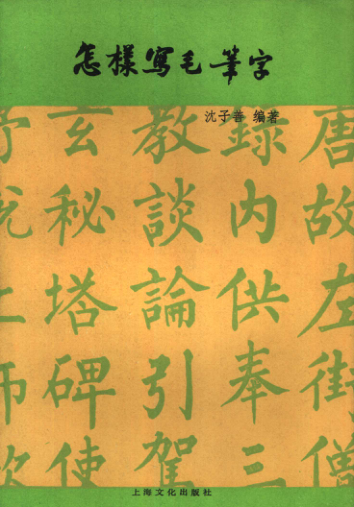 怎樣寫毛筆字
沈子善 编著
唐故左街僧
錄内供奉三
教談論引駕
玄秘塔碑使
上海文化出版社